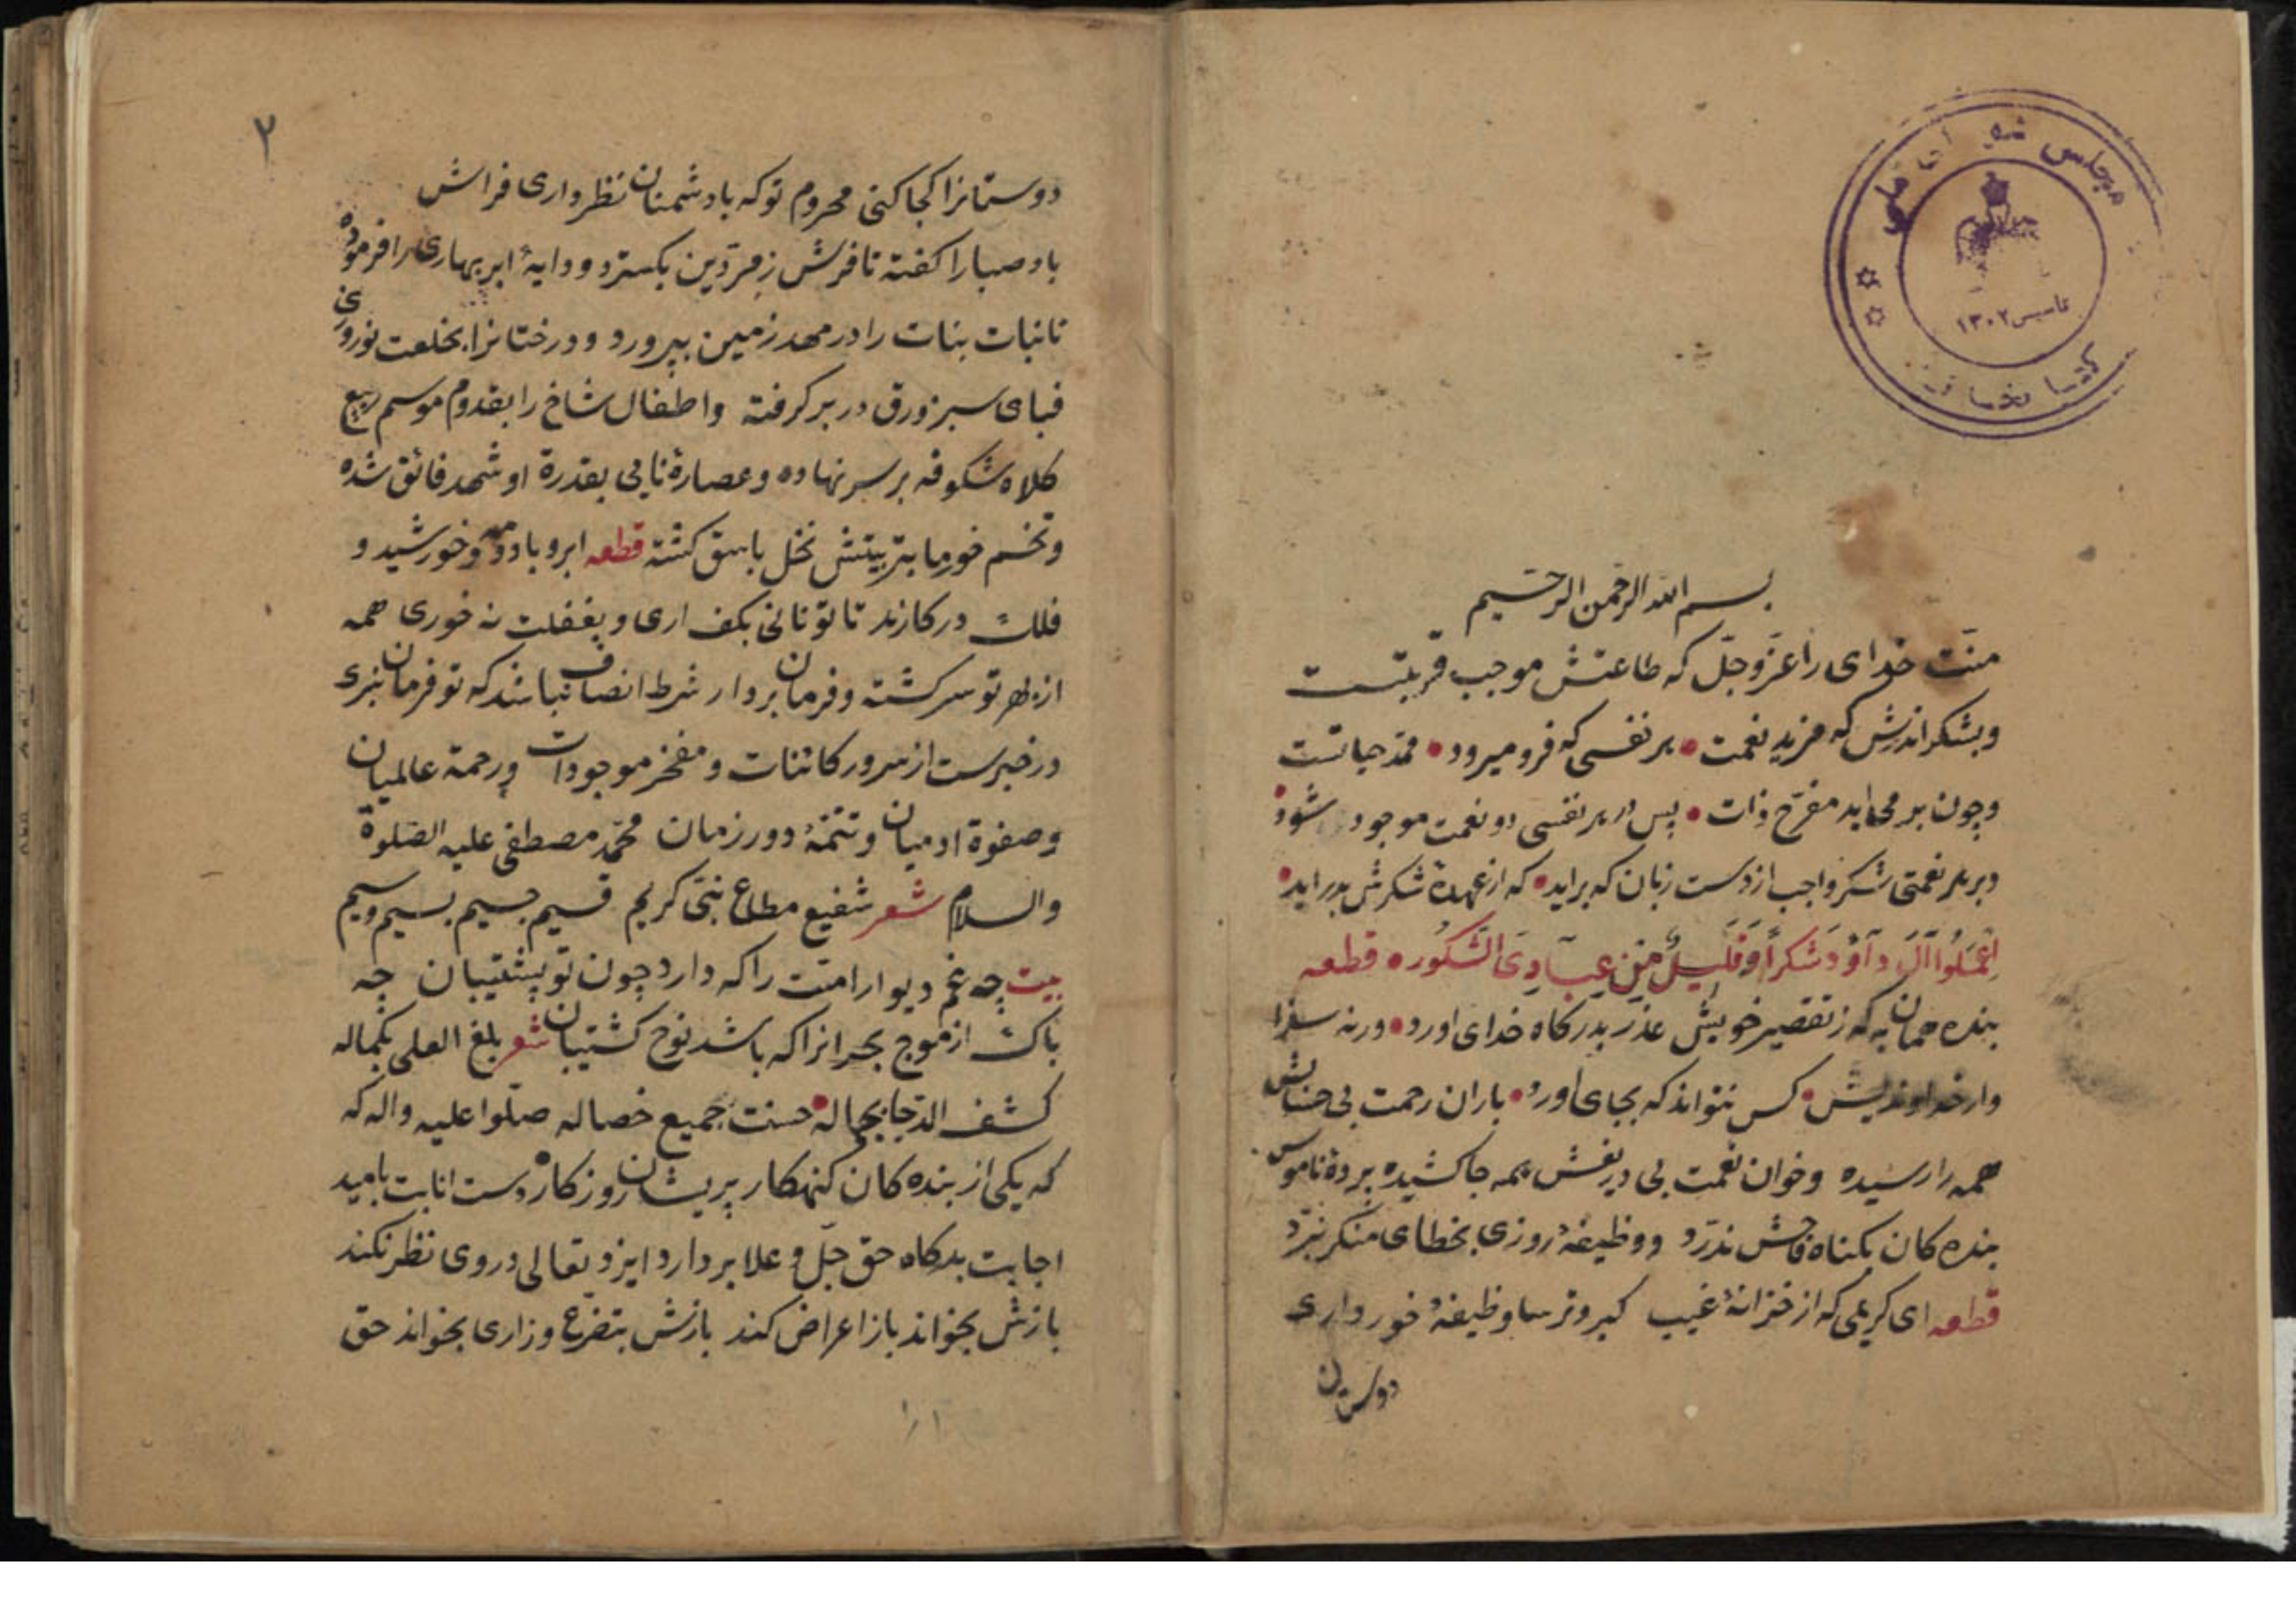 مجلس شورای ملی
تاسیس ۱۳۰۲
کتابخانه
بسم الله الرحمن الرحیم
منّت خدای را عزّ و جلّ که طاعتش موجب قربتست
و بشکر اندرش که مزید نعمت • هر نفسی که فرو میرود • ممدّ حیاتست
و چون بر می اید مفرّح ذات • پس در هر نفسی دو نعمت موجود شود •
و بر هر نعمتی شکر واجب از دست زبان که براید • که از عهدهٔ شکرش بدر اید •
اِعْمَلُوا آلَ دَاوُدَ شُکْراً وَ قَلیلٌ مِنْ عِبَادِیَ الشَّکُور • قطعه
بنده همان به که ز تقصیر خویش عذر بدرکاه خدای اورد • ورنه سزا
وار خداوندیش • کس نتواند که بجای اورد • باران رحمت بی حسابش
همه را رسیده و خوان نعمت بی دریغش همه جا کشیده پردهٔ ناموس
بنده کان بکناه فاحش ندرّد و وظیفهٔ روزی بخطای منکر نبرّد
قطعه ای کریمی که از خزانهٔ غیب کبر و ترسا وظیفهٔ خور داری
دوستان
۲
دوستانرا کجا کنی محروم تو که با دشمنان نظر داری فراش
باد صبا را کفته تا فرش زمرّدین بکسترد و دایهٔ ابر بهاری را فرموده
تا نبات بنات را در مهد زمین بپرورد و درختانرا بخلعت نوروزی
قبای سبز ورق در بر کرفته و اطفال شاخ را بقدوم موسم ربیع
کلاه شکوفه بر سر نهاده و عصارهٔ نایی بقدرة او شهد فائق شده
و تخم خورما بتربیتش نخل باسق کشته قطعه ابر و باد و مه و خورشید و
فلک در کارند تا تو نانی بکف اری و بغفلت نه خوری همه
از بهر تو سرکشته و فرمان بردار شرط انصاف نباشد که تو فرمان نبری
در خبرست از سرور کائنات و مفخر موجودات و رحمة عالمیان
و صفوة ادمیان و تتمّهٔ دور زمان محمّد مصطفی علیه الصّلوة
والسلام شعر شفیع مطاع نبیّ کریم قسیم جسیم بسیم وسیم
بیت چه غم دیوار امّت را که دارد چون تو پشتیبان چه
باک از موج بحر انرا که باشد نوح کشتیبان شعر بلغ العلی بکماله
کشف الدّجا بجماله • حسنت جمیع خصاله صلّوا علیه واله که
که یکی از بنده کان کنهکار پریشان روزکار دست انابت بامید
اجابت بدرکاه حق جلّ و علا بردارد ایزد تعالی در وی نظر نکند
بازش بخواند باز اعراض کند بازش بتضرّع و زاری بخواند حق